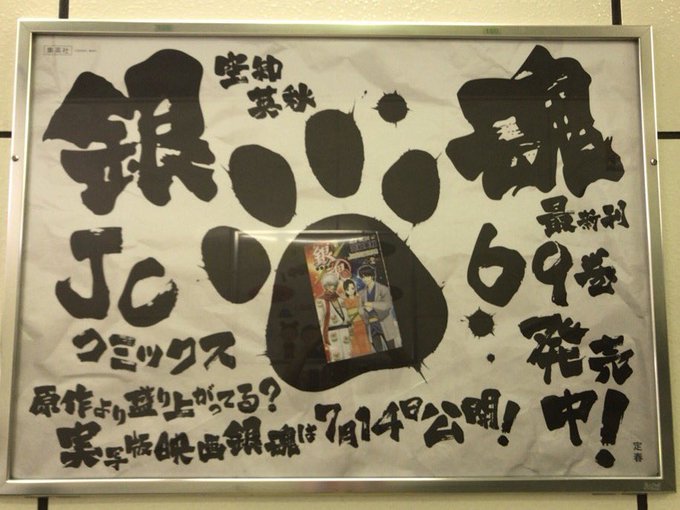 集英社
銀魂
空知
英秋
JC
コミックス
最新刊
69巻
発売
中!
原作より盛り上がってる?
実写版映画銀魂は7月14日公開!
定春